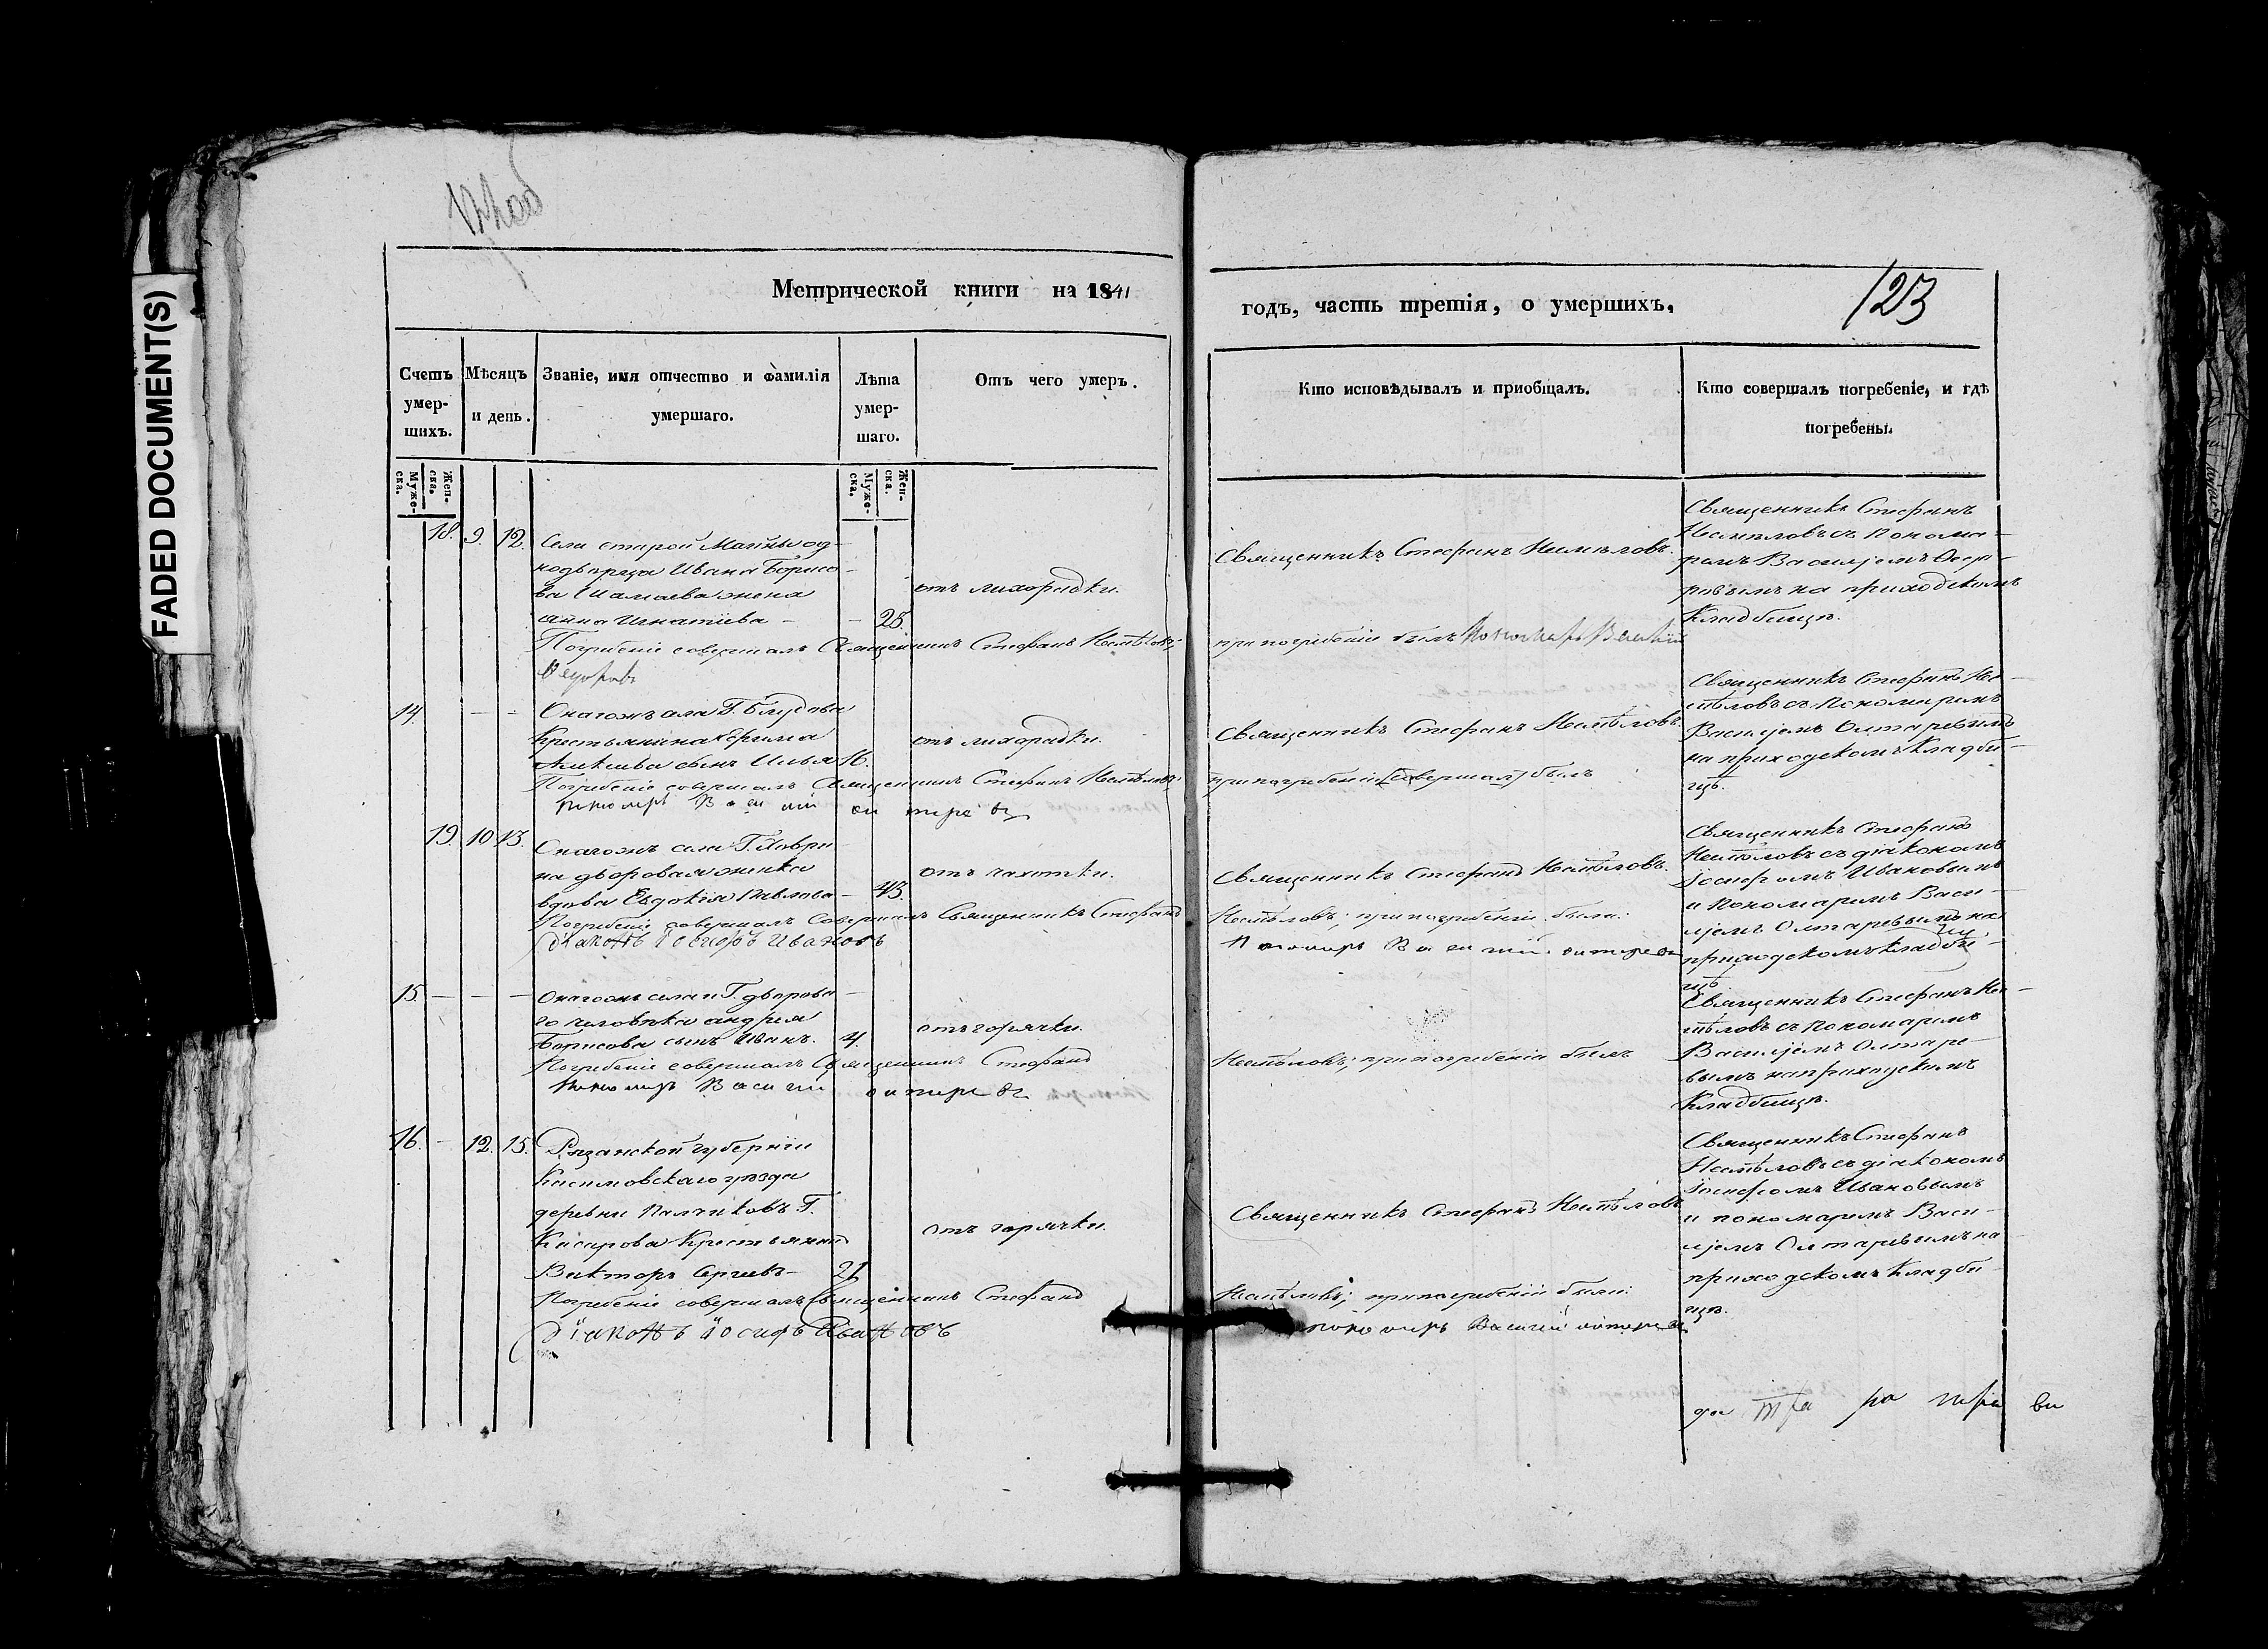 FADED DOCUMENT(S)
Метрической книги на 1841
годъ, часть третія, о умершихъ.
123
Счетъ умер-шихъ.
Мѣсяцъ и день.
Званіе, имя отчество и фамилія умершаго.
Лѣта умер-шаго.
Отъ чего умеръ.
Кто исповѣдывалъ и приобщалъ.
Кто совершалъ погребеніе, и гдѣ погребены.
Муже-ска.
Жен-ска.
Муже-ска.
Жен-ска.
18. 9. 12.
Села старой Майны од-
нодворца Ивана Борисо-
ва Шамаева жена
Анна Игнатіева — 25.
отъ лихорадки.
Священникъ Стефанъ Нематловъ.
Священникъ Стефанъ
Нематловъ съ Понома-
ремъ Василіемъ Ѳеодо-
ровымъ на приходскомъ
Кладбищѣ.
Погребеніе совершалъ Священникъ Стефанъ Нематловъ;
при погребеніи былъ Пономарь Василій
Ѳедоровъ
14. — —
Онагожъ села Г. Блудова
Крестьянина Ефима
Алексѣева сынъ Илья 16.
отъ лихорадки.
Священникъ Стефанъ Нематловъ.
Священникъ Стефанъ Не-
матловъ съ Пономаремъ
Василіемъ Олтаревымъ
на приходскомъ Кладби-
щѣ.
Погребеніе совершалъ Священникъ Стефанъ Нематловъ;
при погребеніи (совершалъ) былъ
пономарь Василій
19. 10 13.
Онагожъ села Г.
на дворовая женка
вдова Евдокія Павлова — 43.
отъ чахотки.
Священникъ Стефанъ Нематловъ.
Священникъ Стефанъ
Нематловъ съ діакономъ
Іосифомъ Ивановымъ
и Пономаремъ Васи-
ліемъ Олтаревымъ на
приходскомъ Кладби-
щѣ
Погребеніе совершалъ Совершалъ Священникъ Стефанъ
Нематловъ; при погребеніи были:
діаконъ Іосифъ Ивановъ
Пономарь Василій
15. — — —
Онагожъ села и Г. дворова-
го человѣка Андрея
Борисова сынъ Иванъ. 4.
отъ горячки.
Священникъ Стефанъ Не-
матловъ съ Пономаремъ
Василіемъ Олтаре-
вымъ на приходскомъ
Кладбищѣ.
Погребеніе совершалъ Священникъ Стефанъ
Нематловъ; при погребеніи былъ
пономарь Василій
16. — 12. 15.
Рязанской губерніи
Касимовскаго уѣзда
деревни Г.
Крестьянинъ
Викторъ Сергѣевъ — 21
отъ горячки.
Священникъ Стефанъ Нематловъ
Священникъ Стефанъ
Нематловъ съ діакономъ
Іосифомъ Ивановымъ
и пономаремъ Васи-
ліемъ Олтаревымъ на
приходскомъ Кладби-
щѣ.
Погребеніе совершалъ Священникъ Стефанъ
Нематловъ; при погребеніи были:
діаконъ Іосифъ Ивановъ
пономарь Василій